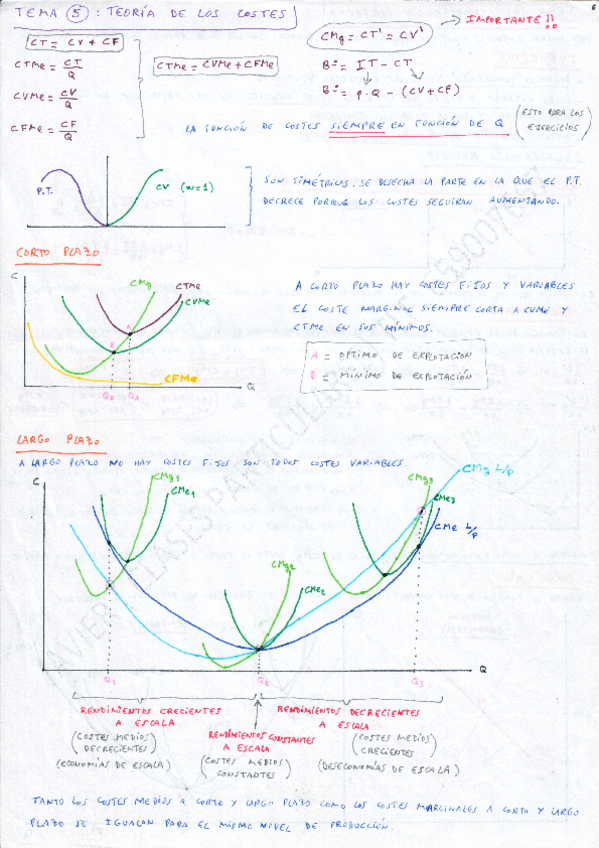 6
TEMA 5 : TEORÍA DE LOS COSTES
CT = CV + CF
CTMe = CT/Q
CVMe = CV/Q
CFMe = CF/Q
CTMe = CVMe + CFMe
CMg = CT' = CV'
→ IMPORTANTE!!
Bº = IT - CT
Bº = P·Q - (CV + CF)
LA FUNCIÓN DE COSTES SIEMPRE EN FUNCIÓN DE Q
(ESTO PARA LOS
EJERCICIOS)
P.T.
CV (w=1)
SON SIMÉTRICAS. SE DESECHA LA PARTE EN LA QUE EL P.T.
DECRECE PORQUE LOS COSTES SEGUIRAN AUMENTANDO.
CORTO PLAZO
C
CMg
CTMe
CVMe
A
B
CFMe
Q
Q_B
Q_A
A CORTO PLAZO HAY COSTES FIJOS Y VARIABLES
EL COSTE MARGINAL SIEMPRE CORTA A CVMe Y
CTMe EN SUS MÍNIMOS.
A = OPTIMO DE EXPLOTACION
B = MÍNIMO DE EXPLOTACIÓN
LARGO PLAZO
A LARGO PLAZO NO HAY COSTES FIJOS SON TODOS COSTES VARIABLES
C
CMg1
CMe1
CMg2
CMe2
CMg3
CMe3
CMg L/P
CMe L/P
Q
Q1
Q2
Q3
RENDIMIENTOS CRECIENTES
A ESCALA
(COSTES MEDIOS
DECRECIENTES)
(ECONOMÍAS DE ESCALA)
RENDIMIENTOS CONSTANTES
A ESCALA
(COSTES MEDIOS
CONSTANTES)
RENDIMIENTOS DECRECIENTES
A ESCALA
(COSTES MEDIOS
CRECIENTES)
(DESECONOMÍAS DE ESCALA)
TANTO LOS COSTES MEDIOS A CORTO Y LARGO PLAZO COMO LOS COSTES MARGINALES A CORTO Y LARGO
PLAZO SE IGUALAN PARA EL MISMO NIVEL DE PRODUCCIÓN.